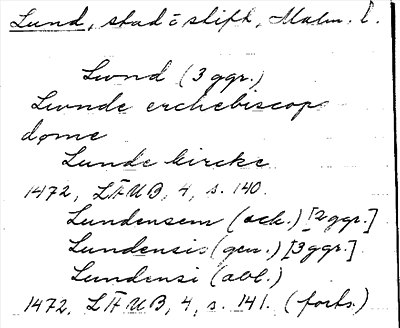 Lund, stad o stift, Malm. l.
Lwnd (3 ggr.)
Lwnde erchebiscop
døme
Lunde kircke
1472, LÄUB, 4, s. 140.
Lundensem (ack.) [2 ggr.]
Lundensis (gen.) [3 ggr.]
Lundensi (abl.)
1472, LÄUB, 4, s. 141. (forts.)